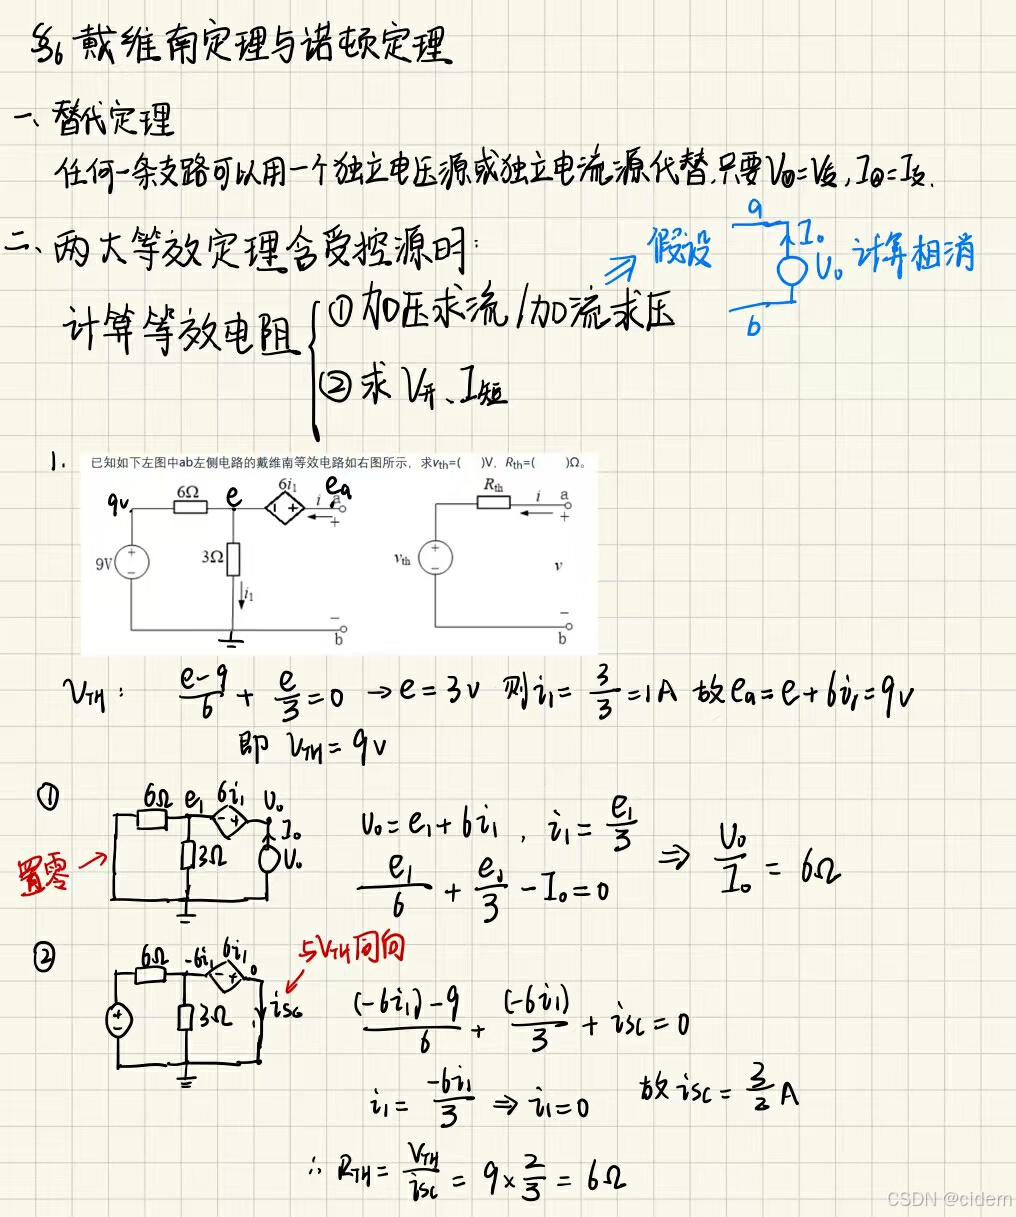 §6 戴维南定理与诺顿定理
一、替代定理
任何一条支路可以用一个独立电压源或独立电流源代替.只要V源=V支,I源=I支.
二、两大等效定理含受控源时:
计算等效电阻
① 加压求流/加流求压
⇒ 假设
a
I₀
U₀ 计算相消
b
② 求 V开、I短
1. 已知如下左图中ab左侧电路的戴维南等效电路如右图所示，求vth=(  )V，Rth=(  )Ω。
9v 6Ω e 6i₁ ea i a
- +
+
9V + − 3Ω i₁
− b
Rth i a
+
vth + − v
− b
VTH: (e-9)/6 + e/3 = 0 → e = 3v 则 i₁ = 3/3 = 1A 故 ea = e + 6i₁ = 9v
即 VTH = 9v
①
6Ω e₁ 6i₁ U₀
- +
I₀
3Ω U₀
置零
U₀ = e₁ + 6i₁ , i₁ = e₁/3
e₁/6 + e₁/3 - I₀ = 0
⇒ U₀/I₀ = 6Ω
②
6Ω -6i₁ 6i₁ 0
- +
与VTH同向
+ - 3Ω isc
((-6i₁)-9)/6 + (-6i₁)/3 + isc = 0
i₁ = -6i₁/3 ⇒ i₁ = 0 故 isc = 3/2 A
∴ RTH = VTH/isc = 9×2/3 = 6Ω
CSDN @cidern